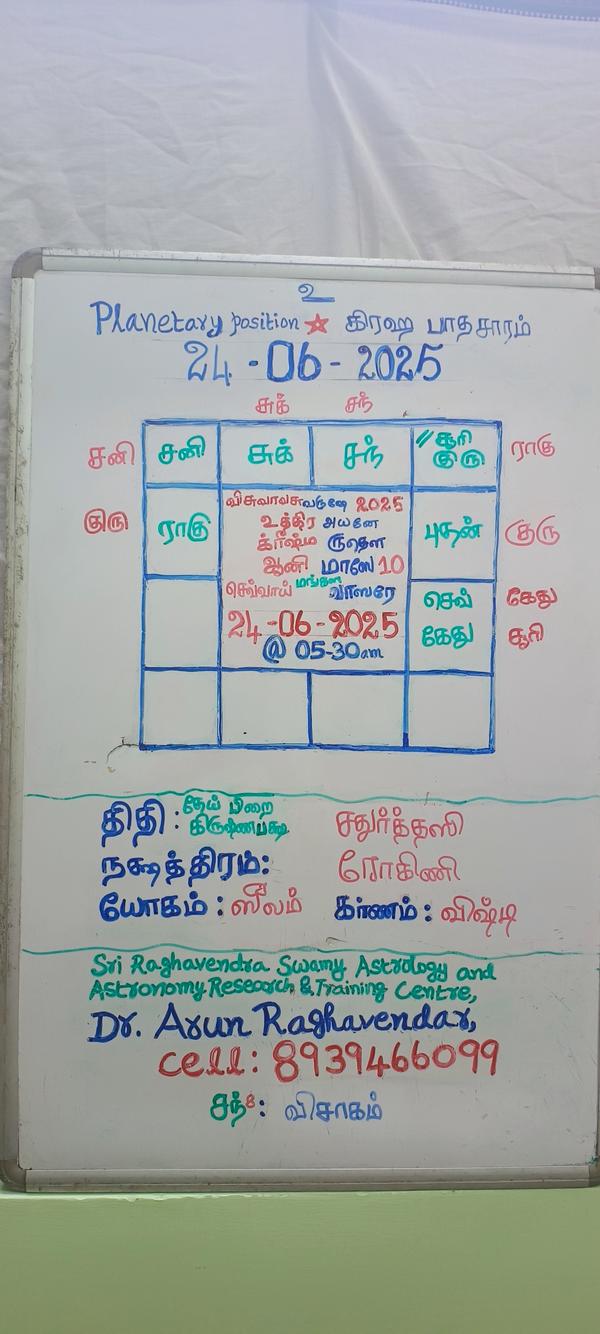 உ
Planetary position ☆ கிரஹ பாதசாரம்
24-06-2025
சுக் சந்
சனி சனி சுக் சந் // சூரி குரு ராகு
குரு ராகு புதன் குரு
விசுவாவசுவருஷே 2025
உத்திர அயனே
க்ரீஷ்ம ருதௌ
ஆனி மாஸே 10
செவ்வாய் மங்கள வாஸரே
24-06-2025
@ 05-30am
செவ் கேது
கேது சூரி
திதி: தேய் பிறை கிருஷ்ணபக்ஷ சதுர்த்தஸி
நக்ஷத்திரம்: ரோகிணி
யோகம்: ஸூலம் கர்ணம்: விஷ்டி
Sri Raghavendra Swamy Astrology and
Astronomy Research & Training Centre,
Dr. Arun Raghavendar,
cell: 8939466099
சந் 8: விசாகம்